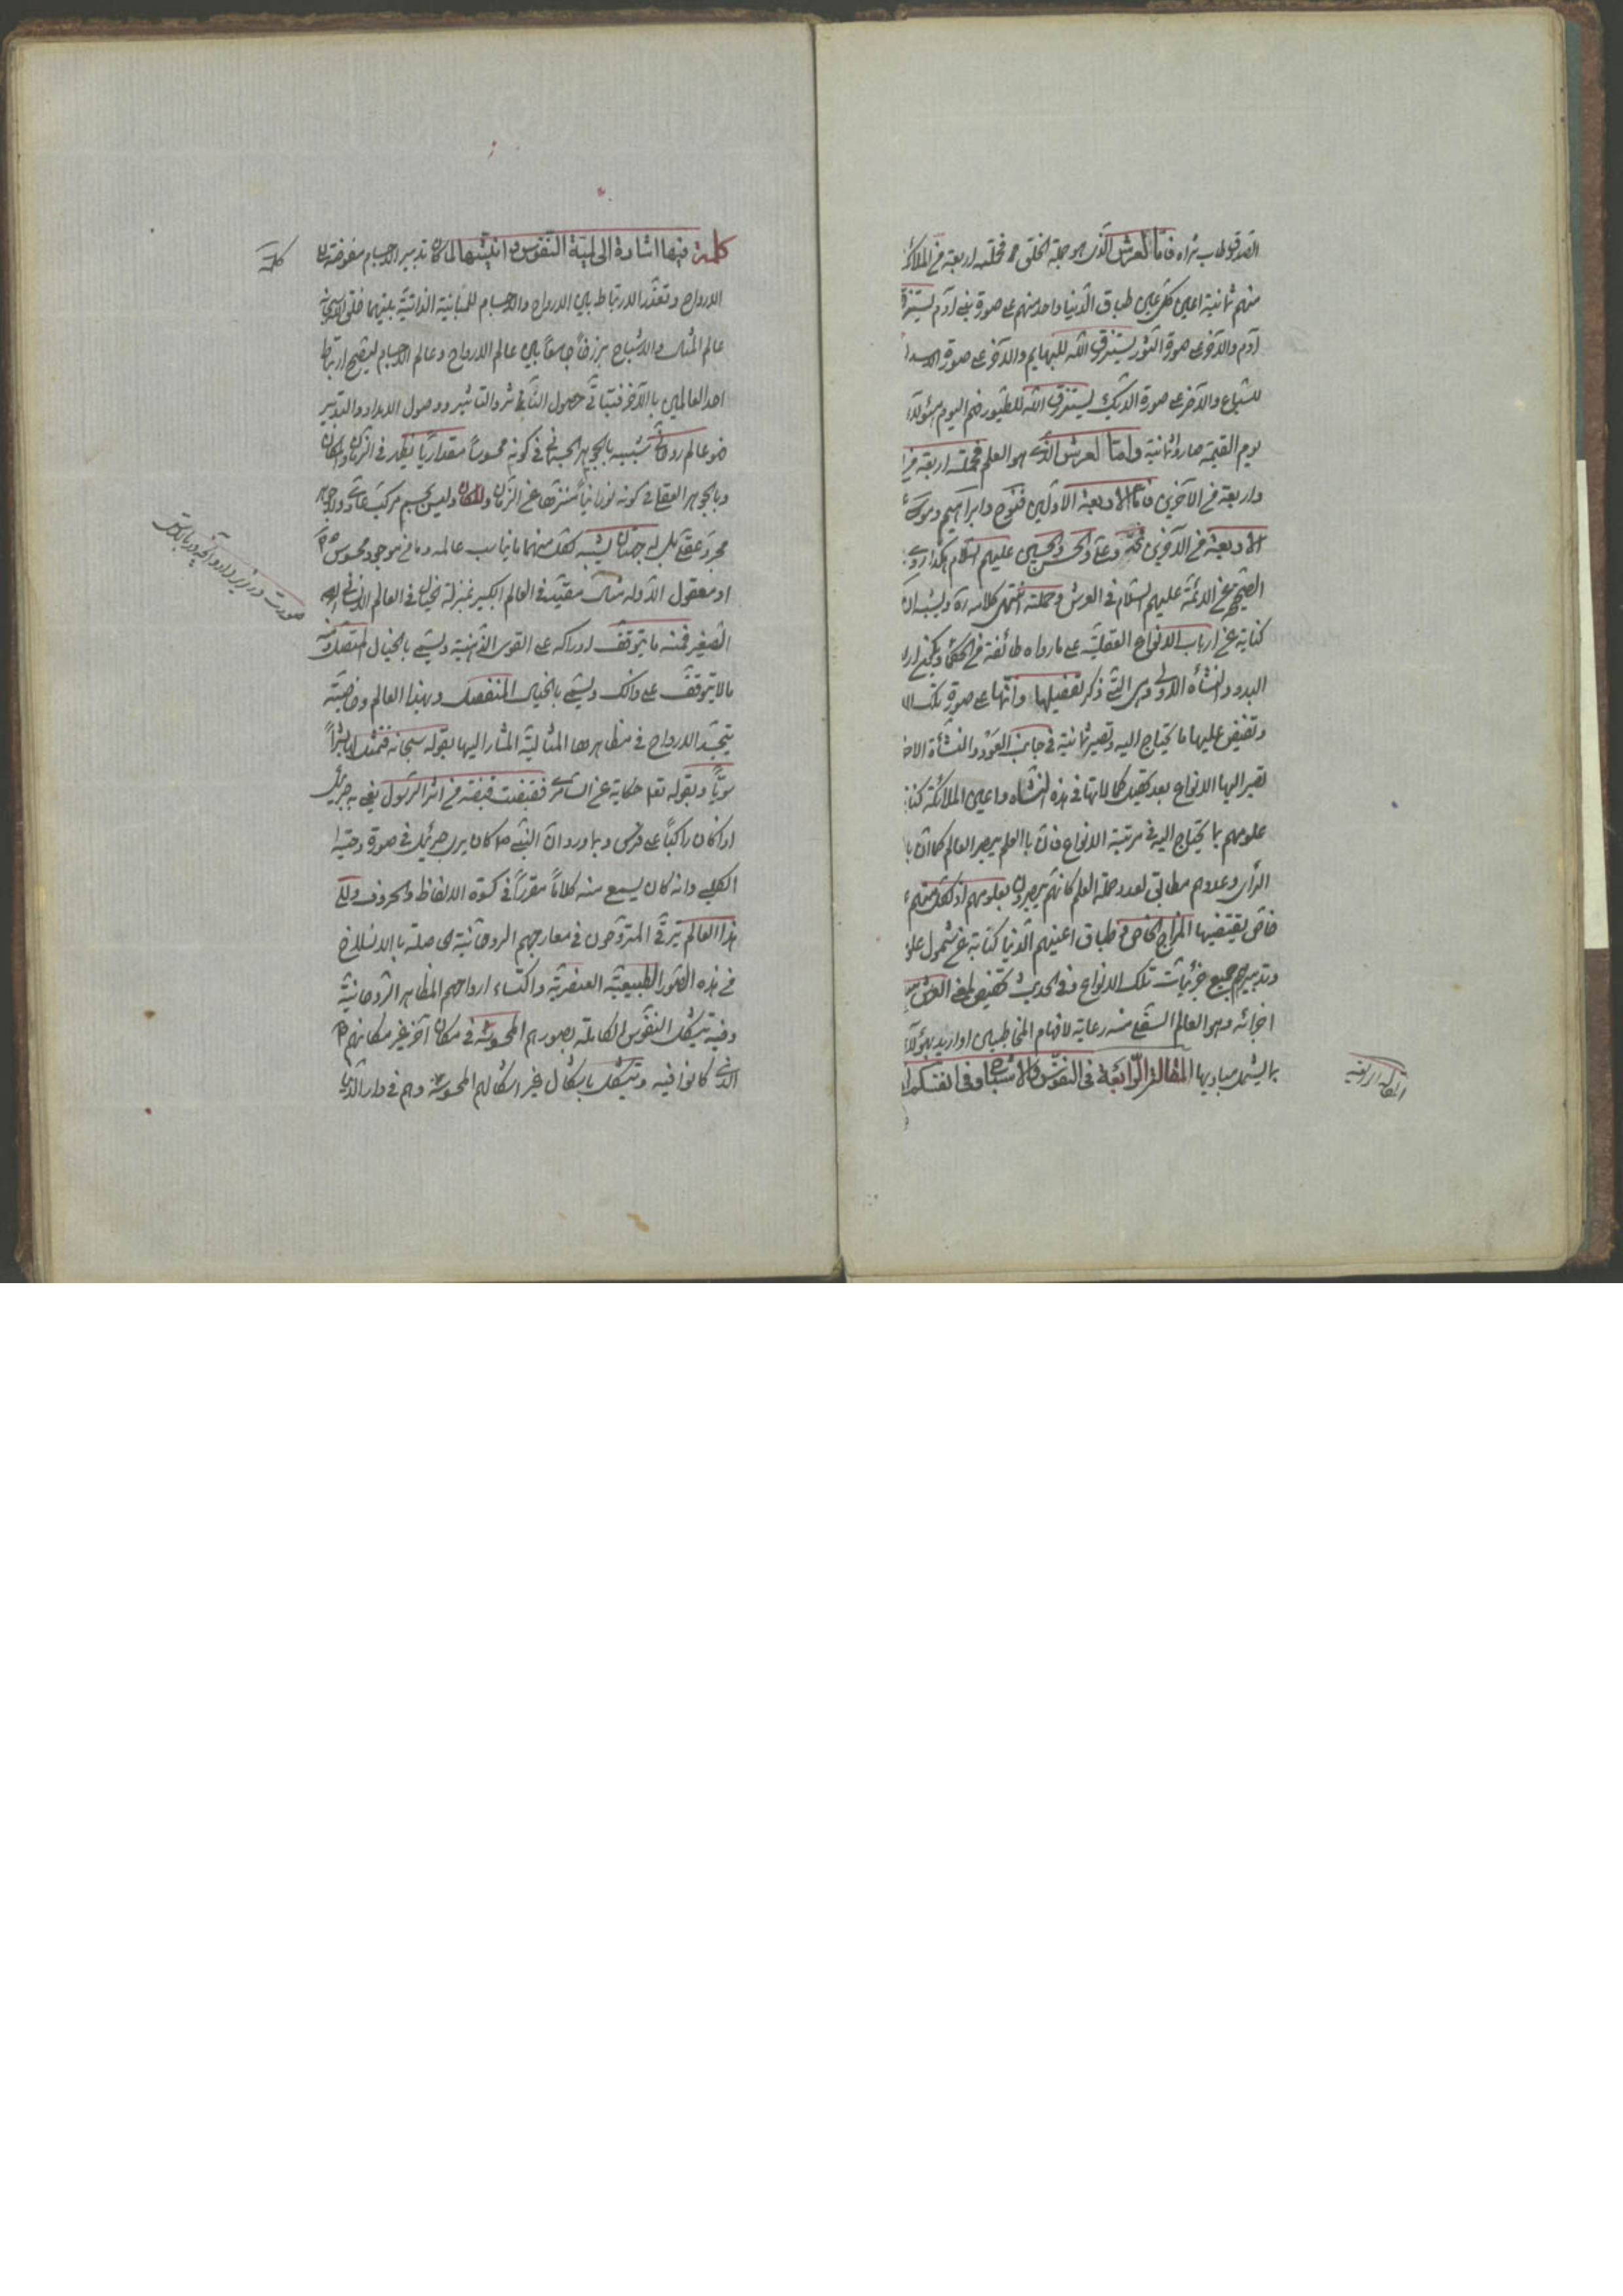 الصدوق طاب ثراه فامّا العرش الذى هو جملة الخلق فحملته اربعة من الملائكة
منهم ثمانية اعين كل عين طباق الدنيا واحد منهم على صورة بنى آدم يسترزق
آدم والآخر على صورة الثور يسترزق الله للبهايم والآخر على صورة الاسد
للسباع والآخر على صورة الديك يسترزق الله للطيور فهم اليوم هؤلاء
يوم القيمة صاروا ثمانية وامّا العرش الذى هو العلم فحملته اربعة من
واربعة من الآخرين فامّا الاربعة الاوّلين فنوح وابراهيم وموسى
الاربعة من الآخرين محمّد وعلى والحسن والحسين عليهم السلام هكذا روى
الصحيح عن الائمّة عليهم السّلام فى العرش وحملته انتهى كلامه ره ويشبه ان
كناية عن ارباب الانواع العقليّة على ما رواه طائفة من الحكماء ويكون
البدو والنشأه الاولى وهى التى ذكر تفصيلها وانّها على صورة تلك
وتفيض عليها ما يحتاج اليه وتصير ثمانية فى جانب العود والنشأة
تصير اليها الانواع بعد تحصيل كمالاتها فى هذه النشاه واعين الملائكة
علومهم بما يحتاج اليه فى مرتبة الانواع فان بالعلم يبصر العالم كما ان
الرأى وعددهم مطابق لعدد حملة العلم كانهم يبصرون بعلومهم او لكل منهم
خاص يقتضيها المزاج الخاص و طباق اعينهم الدنيا كناية عن شمول
وتدبيرهم جميع جزئيات تلك الانواع وفى الحديث تخصيص لمعنى العرش
اجزائه وهو العالم السفلى منه رعاية لافهام المخاطبين او اريد بهؤلاء
ما يشمل مباديها المقالة الرّابعة فى النفوس والاشباح وفى انفسكم
المقالة الرابعة
كلمة فيها اشارة الى لميّة النفوس و انيّتها لما كان تدبير الاجسام مفوضة
الارواح وتعذّر الارتباط بين الارواح والاجسام للمباينة الذاتيّة بينهما خلق الله سبحانه
عالم المثال والاشباح برزخاً جامعاً بين عالم الارواح وعالم الاجسام ليصحّ ارتباط
احد العالمين بالآخر فيتأتّى حصول التأثر والتاثير ووصول الامداد والتدبير
فهو عالم روحانى شبيه بالجوهر الجسمانى فى كونه محسوساً مقداريّا يظهر فى الزمان والمكان
وبالجوهر العقلى فى كونه نورانياً منزّها عن الزمان والمكان وليس بجسم مركب مادى ولا جوهر
مجرد عقلى بل له جهتان يشبه بكل منهما ما يناسب عالمه وما من موجود محسوس
او معقول الا وله مثال مقيّد فى العالم الكبير بمنزلة الخيال فى العالم الانسانى
الصغير فمنه ما يتوقف ادراكه على القوى الذهنية ويسمى بالخيال المتصل ومنه
ما لا يتوقف على ذلك ويسمى بالخيال المنفصل وبهذا العالم وخاصيّته
يتجسّد الارواح فى مظاهرها المثاليّة المشار اليها بقوله سبحانه فتمثّل لها بشراً
سويّاً وبقوله تعا حكاية عن السامرى فقبضت قبضة من اثر الرسول يعنى به جبرئيل
اذا كان راكباً على فرس وبما ورد ان النبى ص كان يرى جبرئيل فى صورة دحية
الكلبى وانه كان يسمع منه كلاماً مقرراً فى كسوة الالفاظ والحروف والى
هذا العالم يترقّى المتروّحون فى معارجهم الروحانيّة الحاصلة بالانسلاخ
من هذه الصور الطبيعيّة العنصريّة واكتساء ارواحهم المظاهر الروحانيّة
وفيه يتشكل النفوس الكاملة بصورهم المحسوسة فى مكان آخر غير مكانهم
الذى كانوا فيه وتتشكل باشكال غير اشكالهم المحسوسة وهم فى دار الدنيا
كلمة
صورت در زير دارد آنچه در بالاستى